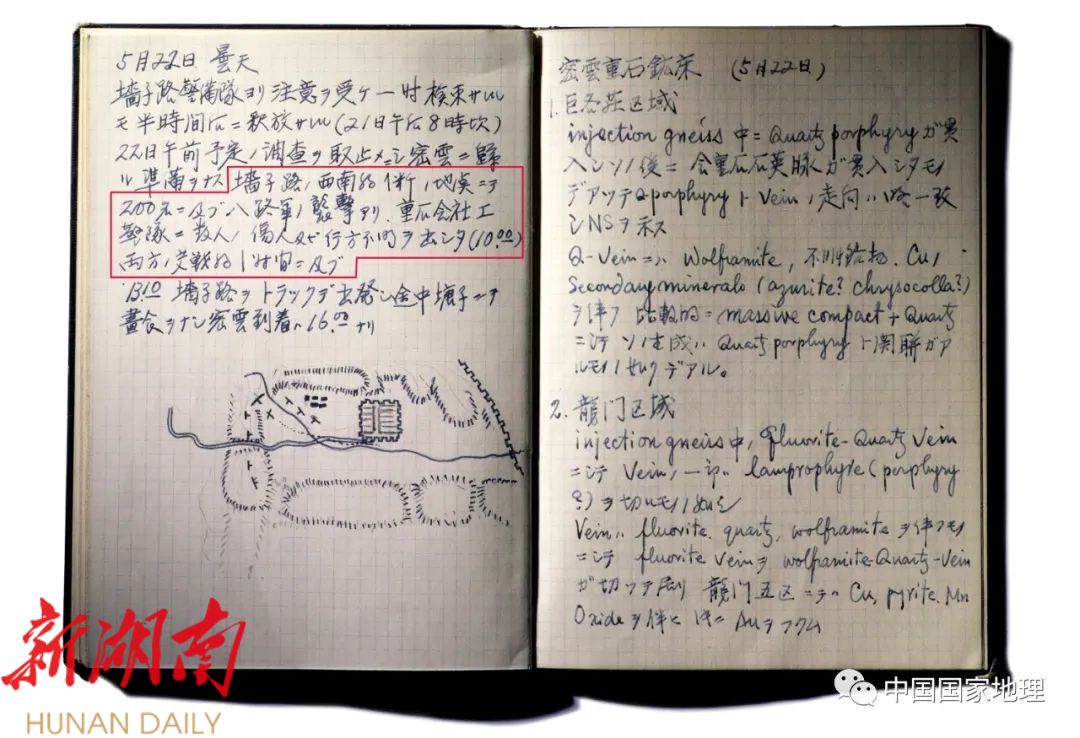 5月22日 曇天
墻子路警備隊ヨリ注意ヲ受ケ一時検束サルル
モ半時間后ニ釈放サル(21日午后8時頃)
22日午前予定ノ調査ヲ取止メニシ密雲ニ歸
ル準備ヲナス 墻子路ノ西南約1粁ノ地点ニテ
200名ニ及ブ八路軍ノ襲撃アリ. 重石会社工
警隊ニ数人ノ傷人及ビ行方不明ヲ出シタ(10.00)
両方ノ交戦約1時間ニ及ブ
13.10 墻子路ヲトラックデ出発シ途中塘子ニテ
晝食ヲナシ密雲到着ハ16.00ナリ
密雲重石鉱床 (5月22日)
1. 巨各莊区域
injection gneiss 中ニ Quartz porphyry ガ貫
入シソノ後ニ含重石石英脈ガ貫入シタモノ
デアッテ Q-porphyry ト Vein ノ走向ハ略一致
シNSヲ示ス
Q-Vein ニハ Wolframite, Cu ノ
Secondary minerals (azurite? chrysocolla?)
ヲ伴フ 比較的ニ massive compact + Quartz
ニシテソノ生成ハ Quartz porphyry ト関聯ガア
ルモノノ如クデアル。
2. 龍门区域
injection gneiss 中ノ fluorite-Quartz Vein
ニシテ Vein ノ一部ハ lamprophyre (porphyry
?) ヲ切ルモノノ如シ
Vein ハ fluorite, quartz, wolframite ヲ伴フモノ
ニシテ fluorite vein ヲ wolframite-Quartz-Vein
ガ切ツテ居ル 龍门五区ニテハ Cu, pyrite, Mn
Oxide ヲ伴ヒ Au ヲフクム
新湖南
HUNAN DAILY
中国国家地理